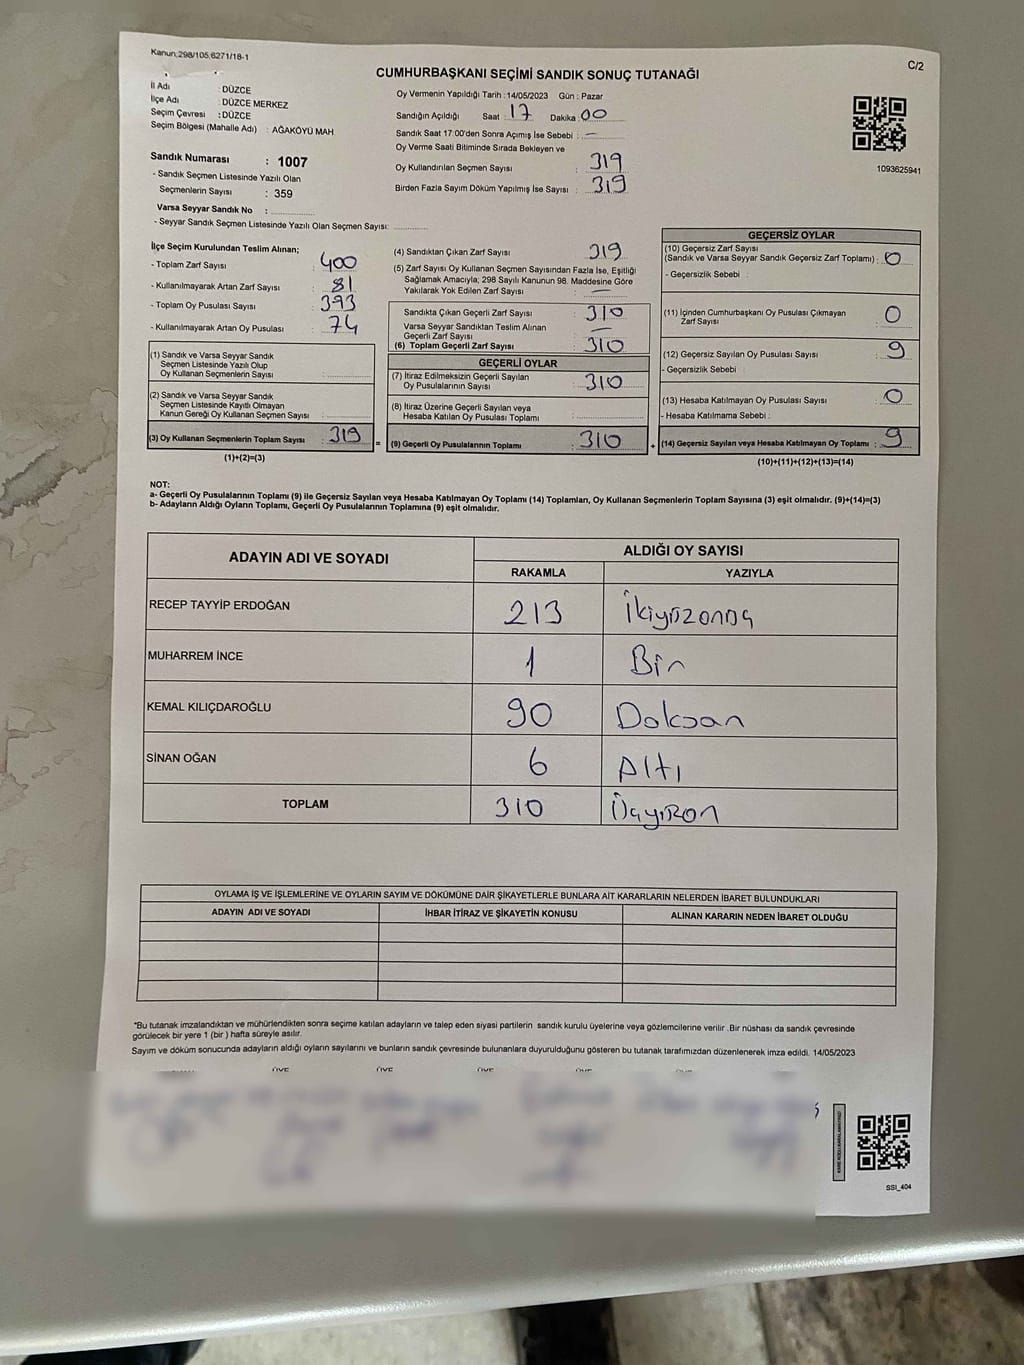 Kanun:298/105,6271/18-1
C/2
CUMHURBAŞKANI SEÇİMİ SANDIK SONUÇ TUTANAĞI
İl Adı : DÜZCE
İlçe Adı : DÜZCE MERKEZ
Seçim Çevresi : DÜZCE
Seçim Bölgesi (Mahalle Adı) : AĞAKÖYÜ MAH.
Sandık Numarası : 1007
- Sandık Seçmen Listesinde Yazılı Olan
Seçmenlerin Sayısı : 359
Varsa Seyyar Sandık No :
- Seyyar Sandık Seçmen Listesinde Yazılı Olan Seçmen Sayısı:
Oy Vermenin Yapıldığı Tarih : 14/05/2023 Gün : Pazar
Sandığın Açıldığı Saat : 17 Dakika : 00
Sandık Saat 17:00'den Sonra Açımış İse Sebebi : —
Oy Verme Saati Bitiminde Sırada Bekleyen ve
Oy Kullandırılan Seçmen Sayısı : 319
Birden Fazla Sayım Döküm Yapılmış İse Sayısı : 319
1093625941
İlçe Seçim Kurulundan Teslim Alınan;
- Toplam Zarf Sayısı : 400
- Kullanılmayarak Artan Zarf Sayısı : 81
- Toplam Oy Pusulası Sayısı : 393
- Kullanılmayarak Artan Oy Pusulası : 74
(1) Sandık ve Varsa Seyyar Sandık
Seçmen Listesinde Yazılı Olup
Oy Kullanan Seçmenlerin Sayısı :
(2) Sandık ve Varsa Seyyar Sandık
Seçmen Listesinde Kayıtlı Olmayan
Kanun Gereği Oy Kullanan Seçmen Sayısı :
(3) Oy Kullanan Seçmenlerin Toplam Sayısı : 319
(1)+(2)=(3)
(4) Sandıktan Çıkan Zarf Sayısı : 319
(5) Zarf Sayısı Oy Kullanan Seçmen Sayısından Fazla İse, Eşitliği
Sağlamak Amacıyla; 298 Sayılı Kanunun 98. Maddesine Göre
Yakılarak Yok Edilen Zarf Sayısı : —
Sandıkta Çıkan Geçerli Zarf Sayısı : 310
Varsa Seyyar Sandıktan Teslim Alınan
Geçerli Zarf Sayısı : —
(6) Toplam Geçerli Zarf Sayısı : 310
GEÇERLİ OYLAR
(7) İtiraz Edilmeksizin Geçerli Sayılan
Oy Pusulalarının Sayısı : 310
(8) İtiraz Üzerine Geçerli Sayılan veya
Hesaba Katılan Oy Pusulası Toplamı :
= (9) Geçerli Oy Pusulalarının Toplamı : 310 +
GEÇERSİZ OYLAR
(10) Geçersiz Zarf Sayısı
(Sandık ve Varsa Seyyar Sandık Geçersiz Zarf Toplamı) : 0
- Geçersizlik Sebebi :
(11) İçinden Cumhurbaşkanı Oy Pusulası Çıkmayan
Zarf Sayısı : 0
(12) Geçersiz Sayılan Oy Pusulası Sayısı : 9
- Geçersizlik Sebebi :
(13) Hesaba Katılmayan Oy Pusulası Sayısı : 0
- Hesaba Katılmama Sebebi :
(14) Geçersiz Sayılan veya Hesaba Katılmayan Oy Toplamı : 9
(10)+(11)+(12)+(13)=(14)
NOT:
a- Geçerli Oy Pusulalarının Toplamı (9) ile Geçersiz Sayılan veya Hesaba Katılmayan Oy Toplamı (14) Toplamları, Oy Kullanan Seçmenlerin Toplam Sayısına (3) eşit olmalıdır. (9)+(14)=(3)
b- Adayların Aldığı Oyların Toplamı, Geçerli Oy Pusulalarının Toplamına (9) eşit olmalıdır.
ADAYIN ADI VE SOYADI
ALDIĞI OY SAYISI
RAKAMLA YAZIYLA
RECEP TAYYİP ERDOĞAN 213 İkiyüzonüç
MUHARREM İNCE 1 Bir
KEMAL KILIÇDAROĞLU 90 Doksan
SİNAN OĞAN 6 Altı
TOPLAM 310 Üçyüzon
OYLAMA İŞ VE İŞLEMLERİNE VE OYLARIN SAYIM VE DÖKÜMÜNE DAİR ŞİKAYETLERLE BUNLARA AİT KARARLARIN NELERDEN İBARET BULUNDUKLARI
ADAYIN ADI VE SOYADI İHBAR İTİRAZ VE ŞİKAYETİN KONUSU ALINAN KARARIN NEDEN İBARET OLDUĞU
*Bu tutanak imzalandıktan ve mühürlendikten sonra seçime katılan adayların ve talep eden siyasi partilerin sandık kurulu üyelerine veya gözlemcilerine verilir .Bir nüshası da sandık çevresinde
görülecek bir yere 1 (bir ) hafta süreyle asılır.
Sayım ve döküm sonucunda adayların aldığı oyların sayılarını ve bunların sandık çevresinde bulunanlara duyurulduğunu gösteren bu tutanak tarafımızdan düzenlenerek imza edildi. 14/05/2023
ÜYE ÜYE ÜYE ÜYE
SSI_404